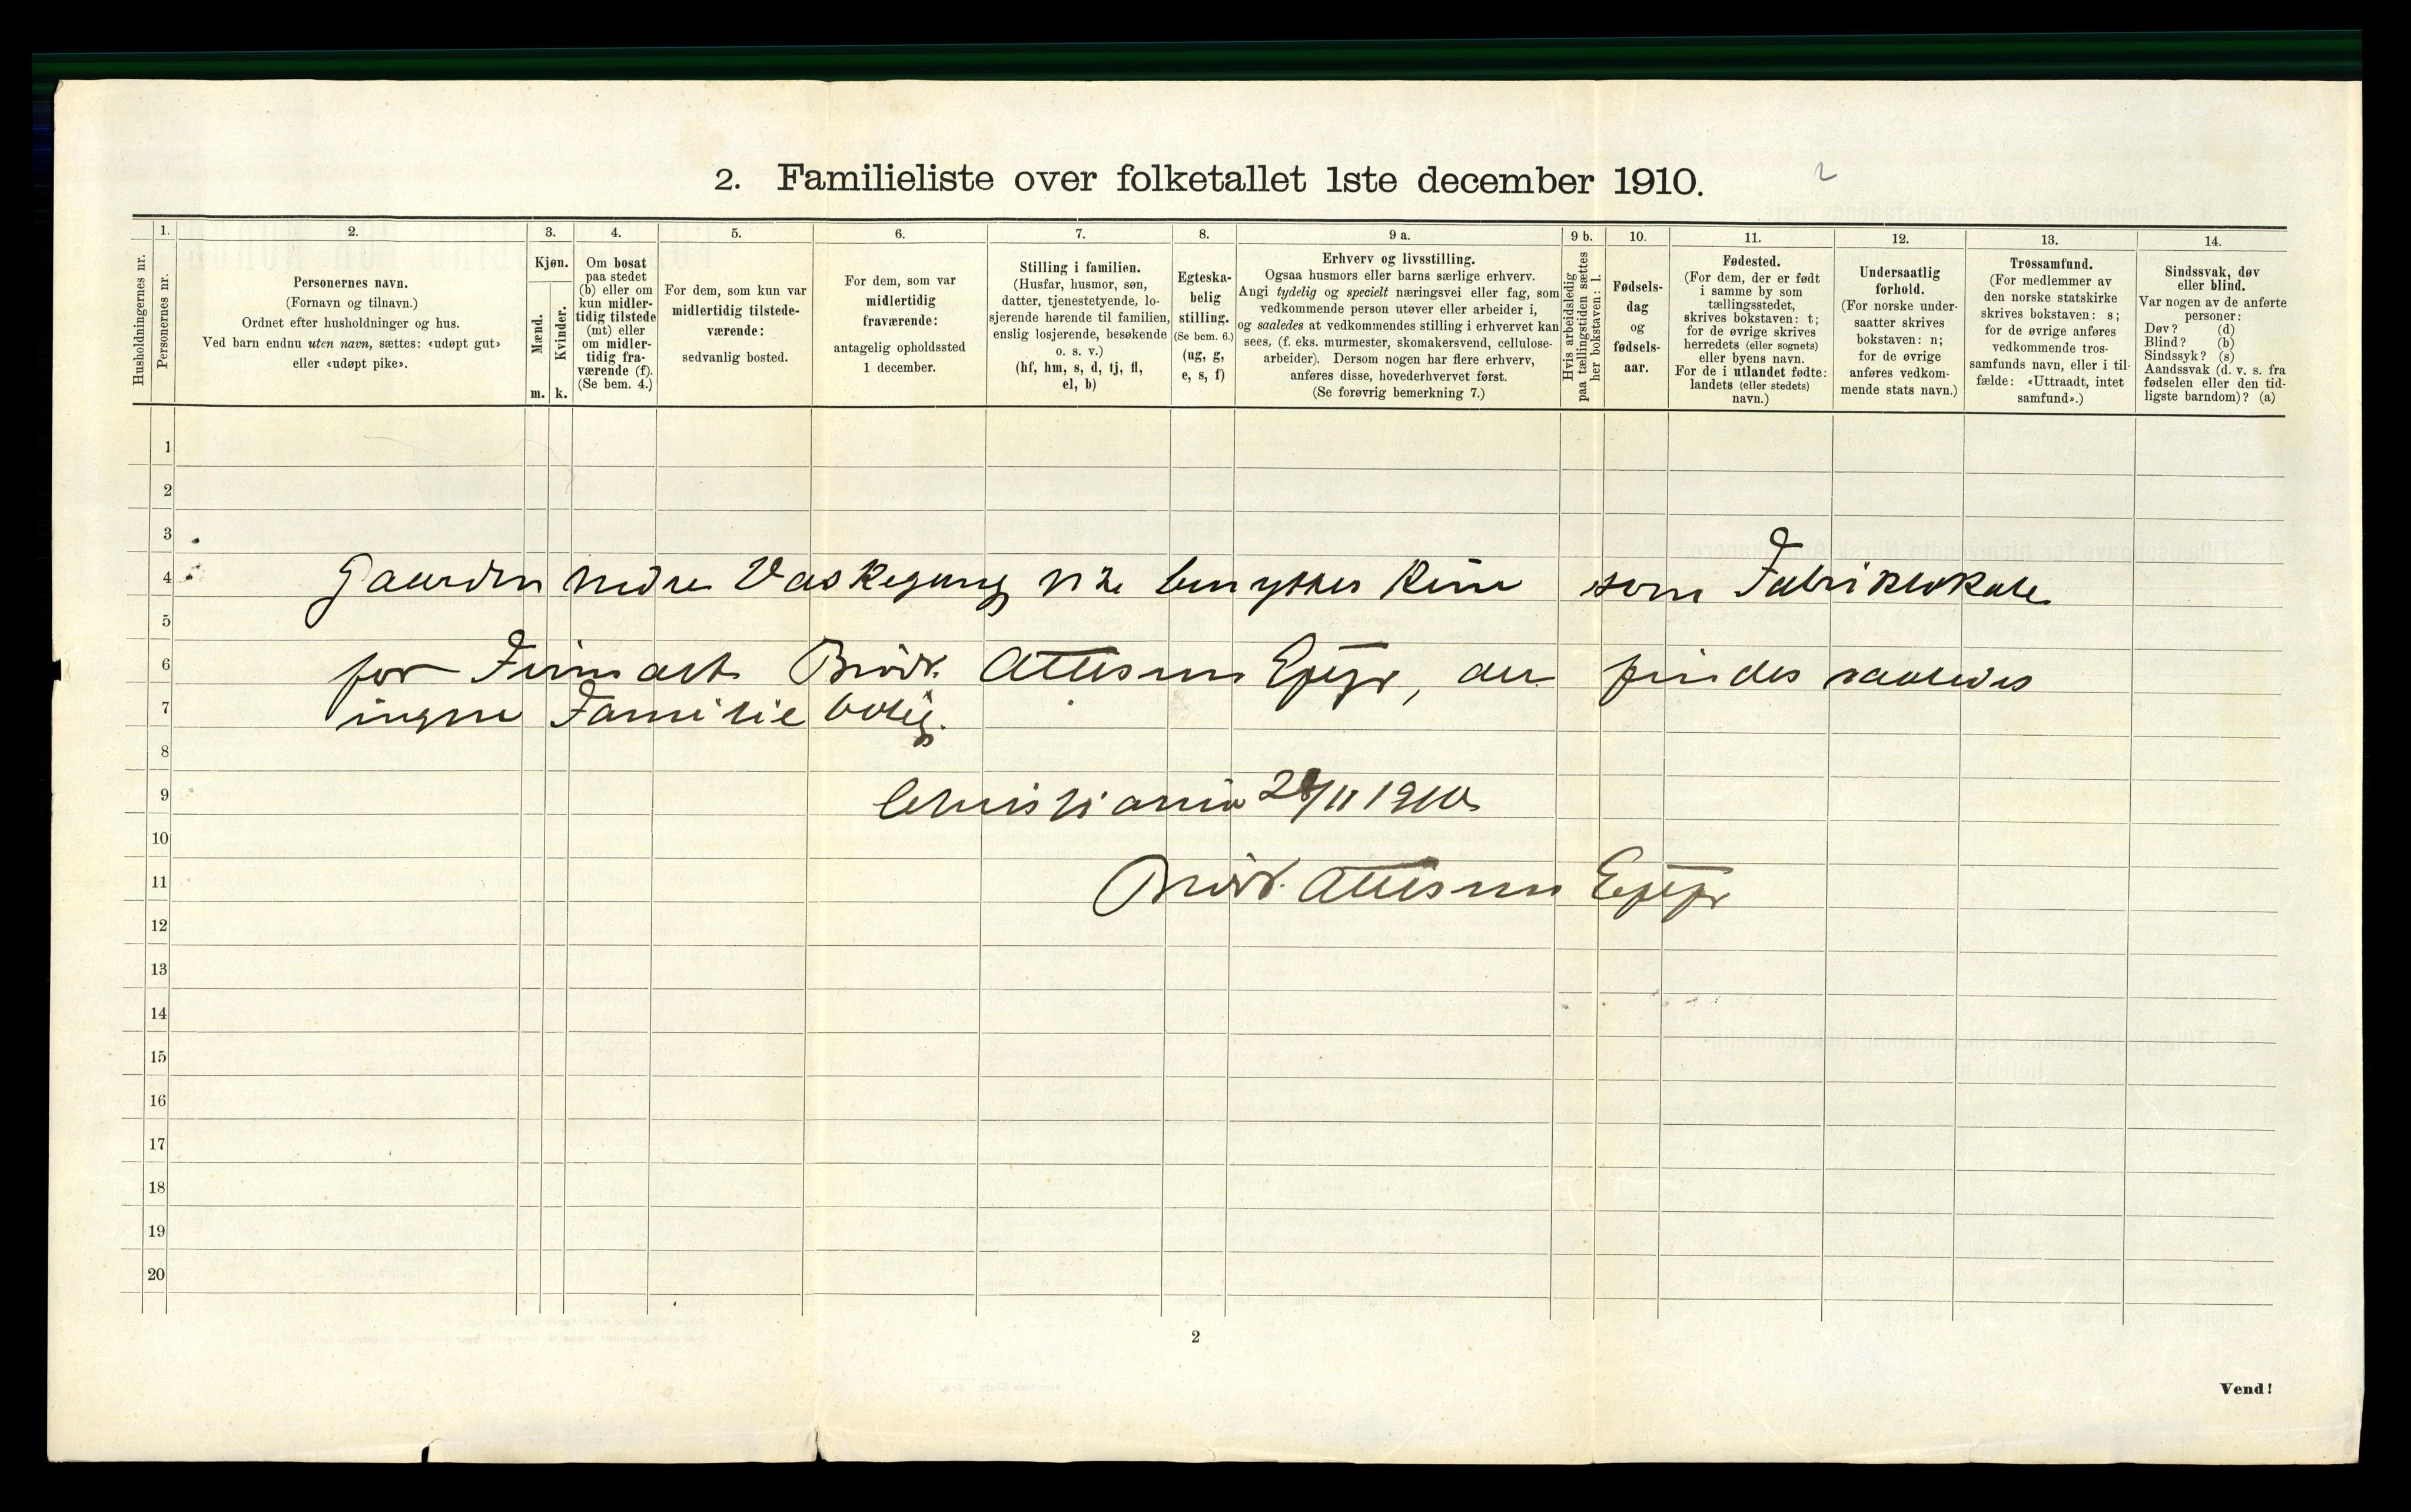 2. Familieliste over folketallet 1ste december 1910.
2
Husholdningernes nr.
1.
Personernes nr.
2.
Personernes navn.
(Fornavn og tilnavn.)
Ordnet efter husholdninger og hus.
Ved barn endnu uten navn, sættes: «udøpt gut»
eller «udøpt pike».
3.
Kjøn.
Mænd.
m.
Kvinder.
k.
4.
Om bosat
paa stedet
(b) eller om
kun midler-
tidig tilstede
(mt) eller
om midler-
tidig fra-
værende (f).
(Se bem. 4.)
5.
For dem, som kun var
midlertidig tilstede-
værende:
sedvanlig bosted.
6.
For dem, som var
midlertidig
fraværende:
antagelig opholdssted
1 december.
7.
Stilling i familien.
(Husfar, husmor, søn,
datter, tjenestetyende, lo-
sjerende hørende til familien,
enslig losjerende, besøkende
o. s. v.)
(hf, hm, s, d, tj, fl,
el, b)
8.
Egteska-
belig
stilling.
(Se bem. 6.)
(ug, g,
e, s, f)
9 a.
Erhverv og livsstilling.
Ogsaa husmors eller barns særlige erhverv.
Angi tydelig og specielt næringsvei eller fag, som
vedkommende person utøver eller arbeider i,
og saaledes at vedkommendes stilling i erhvervet kan
sees, (f. eks. murmester, skomakersvend, cellulose-
arbeider). Dersom nogen har flere erhverv,
anføres disse, hovederhvervet først.
(Se forøvrig bemerkning 7.)
9 b.
Hvis arbeidsledig
paa tællingstiden sættes
her bokstaven: l.
10.
Fødsels-
dag
og
fødsels-
aar.
11.
Fødested.
(For dem, der er født
i samme by som
tællingsstedet,
skrives bokstaven: t;
for de øvrige skrives
herredets (eller sognets)
eller byens navn.
For de i utlandet fødte:
landets (eller stedets)
navn.)
12.
Undersaatlig
forhold.
(For norske under-
saatter skrives
bokstaven: n;
for de øvrige
anføres vedkom-
mende stats navn.)
13.
Trossamfund.
(For medlemmer av
den norske statskirke
skrives bokstaven: s;
for de øvrige anføres
vedkommende tros-
samfunds navn, eller i til-
fælde: «Uttraadt, intet
samfund».)
14.
Sindssvak, døv
eller blind.
Var nogen av de anførte
personer:
Døv? (d)
Blind? (b)
Sindssyk? (s)
Aandssvak (d. v. s. fra
fødselen eller den tid-
ligste barndom)? (a)
1
2
3
4 Gaarden nedre Vaskegang benyttes kun som Fabriklokale
5
6 for Firmaet Brödr. Ottesen Eftfgr, der findes saaledes
7 ingen Familie bolig.
8
9 Christiania 28/11 1910
10
11 Brödr. Ottesen Eftfgr
12
13
14
15
16
17
18
19
20
2
Vend!